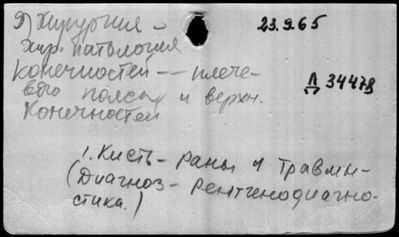 9) Хирургия –
хир. патология
конечностей – плече-
вого пояса и верхн.
Конечностей
23.9.65
Л 34478
1. Кисть - раны и травмы -
(Диагноз - рентгенодиагно-
стика.)